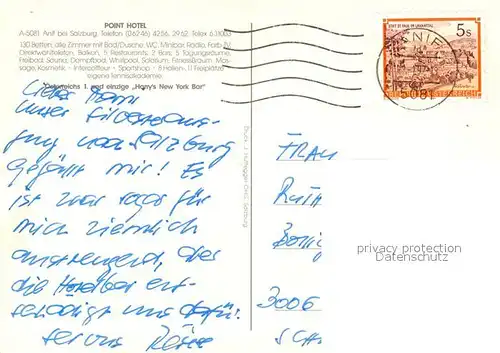 POINT HOTEL
A-5081 Anif bei Salzburg, Telefon (06246) 4256, 2952, Telex 6.31003
130 Betten, alle Zimmer mit Bad/Dusche, WC, Minibar, Radio, Farb-TV
Direktwahltelefon, Balkon, 5 Restaurants, 2 Bars, 5 Tagungsräume,
Freibad, Sauna, Dampfbad, Whirlpool, Solarium, Fitness-Raum, Mas-
sage, Kosmetik - Intercoiffeur - Sportshop - 8 Hallen-, 11 Freiplätze
eigene Tennisakademie
Österreichs 1. und einzige „Harry's New York Bar"
STIFT ST. PAUL IM LAVANTTAL
5s
REPUBLIK ÖSTERREICH
ANIF
5081
Liebe
unser
gung von Salzburg
gefällt mir! Es
ist zwar sogar für
mich ziemlich
anstrengend, aber
die Hotelbar ent-
schädigt uns dafür.
Servus
FRAU
3006
SCH
privacy protection
Datenschutz